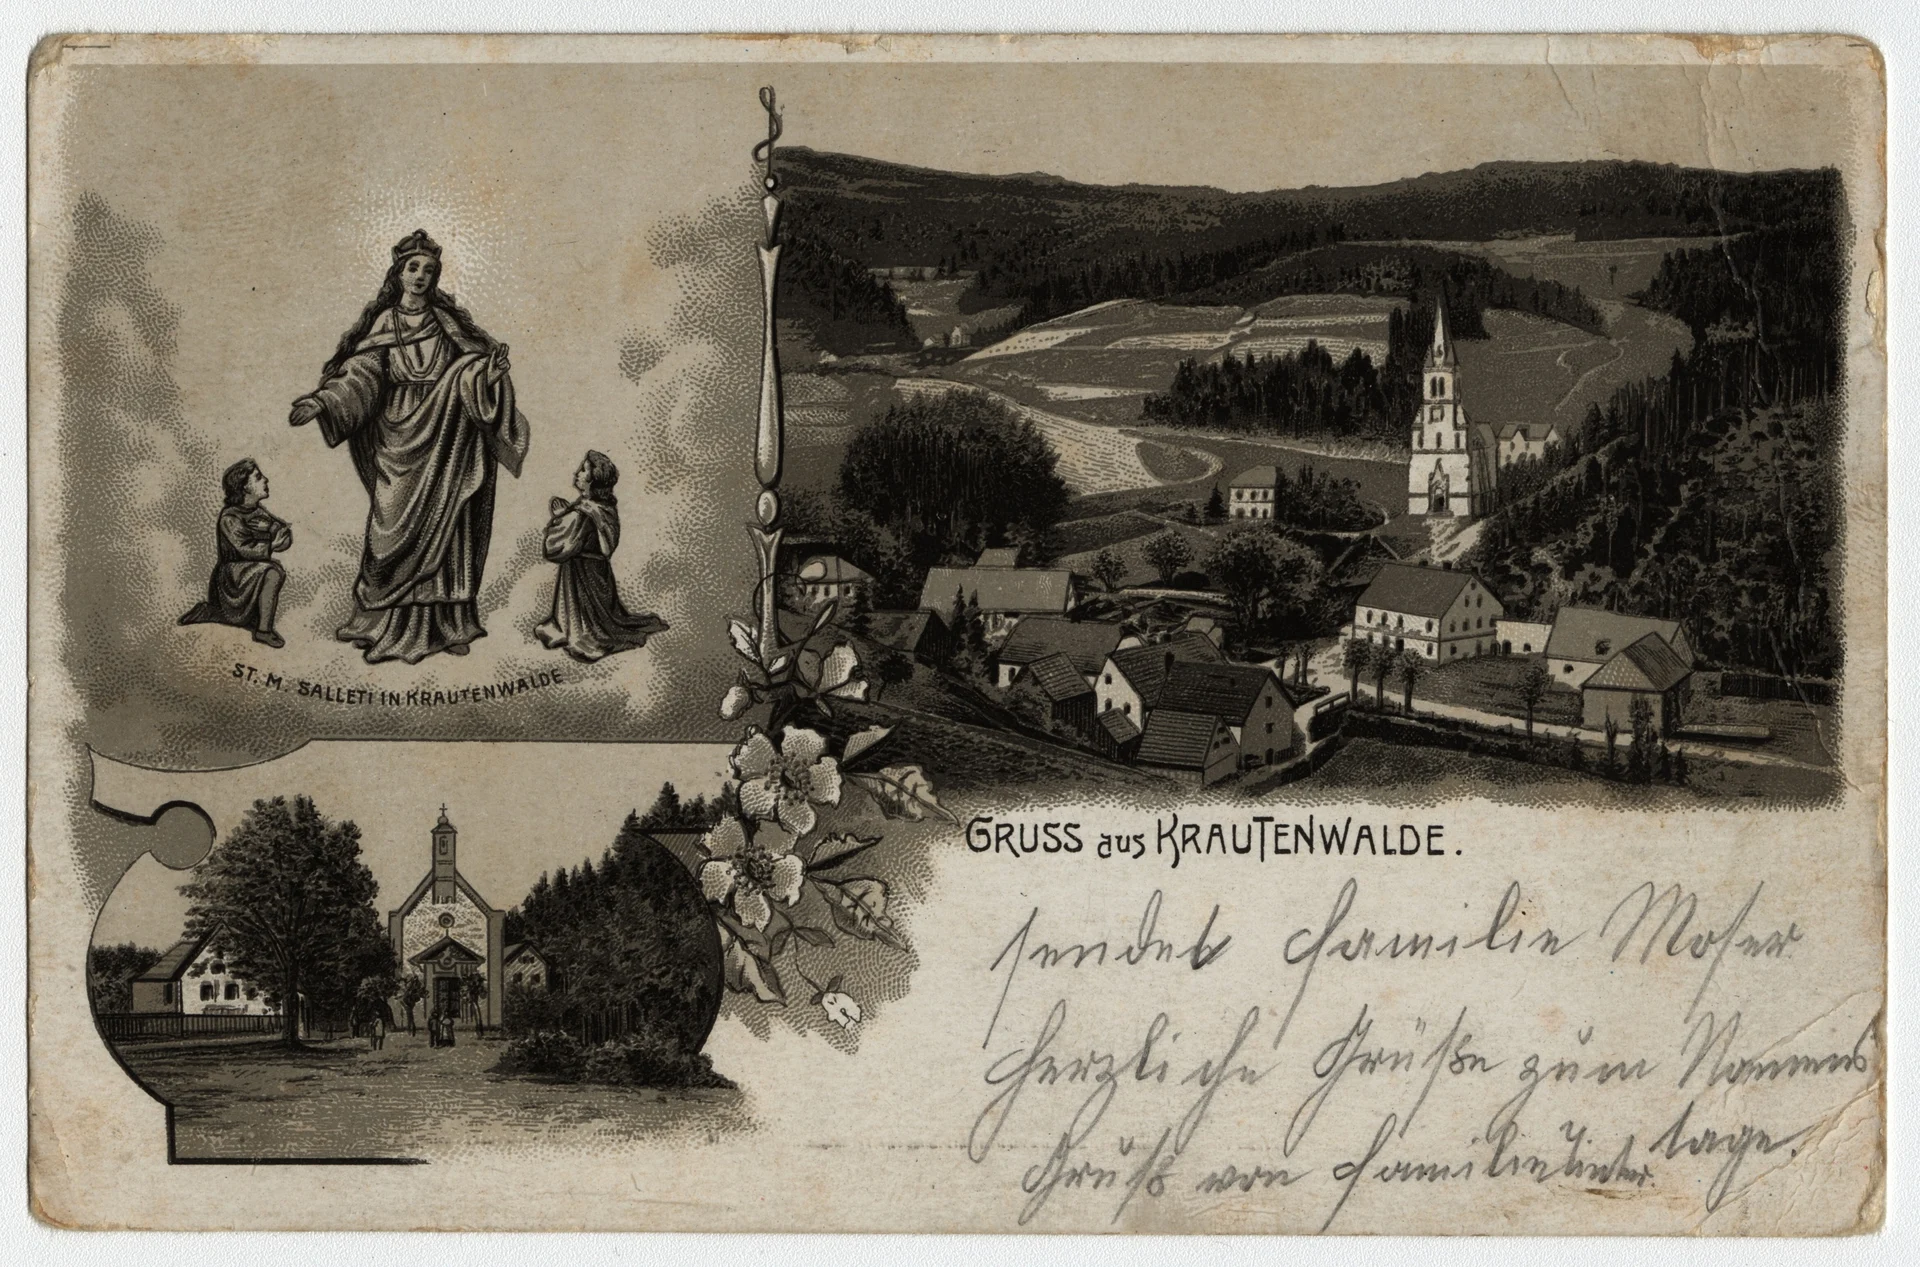 ST. M. SALLETI IN KRAUTENWALDE
GRUSS aus KRAUTENWALDE.
sendet Familie Moser
herzliche Grüße zum Namens
tage.
Gruß von Familie